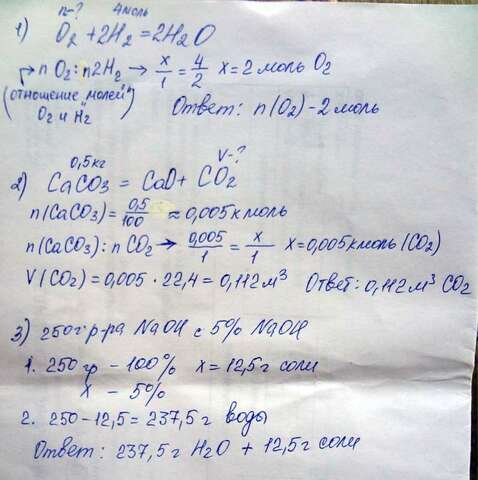 n-? 4моль
1) O₂ + 2H₂ = 2H₂O
n O₂ : n 2H₂ → x/1 = 4/2 x = 2 моль O₂
(отношение "молей") Ответ: n(O₂) - 2 моль
O₂ и H₂
0,5кг V-?
2) CaCO₃ = CaO + CO₂
n(CaCO₃) = 0,5/100 ≈ 0,005 кмоль
n(CaCO₃) : n CO₂ → 0,005/1 = x/1 x = 0,005 кмоль (CO₂)
V(CO₂) = 0,005 · 22,4 = 0,112 м³ Ответ: 0,112 м³ CO₂
3) 250г р-ра NaOH с 5% NaOH
1. 250 гр - 100% x = 12,5г соли
x - 5%
2. 250 - 12,5 = 237,5г воды
Ответ: 237,5г H₂O + 12,5г соли